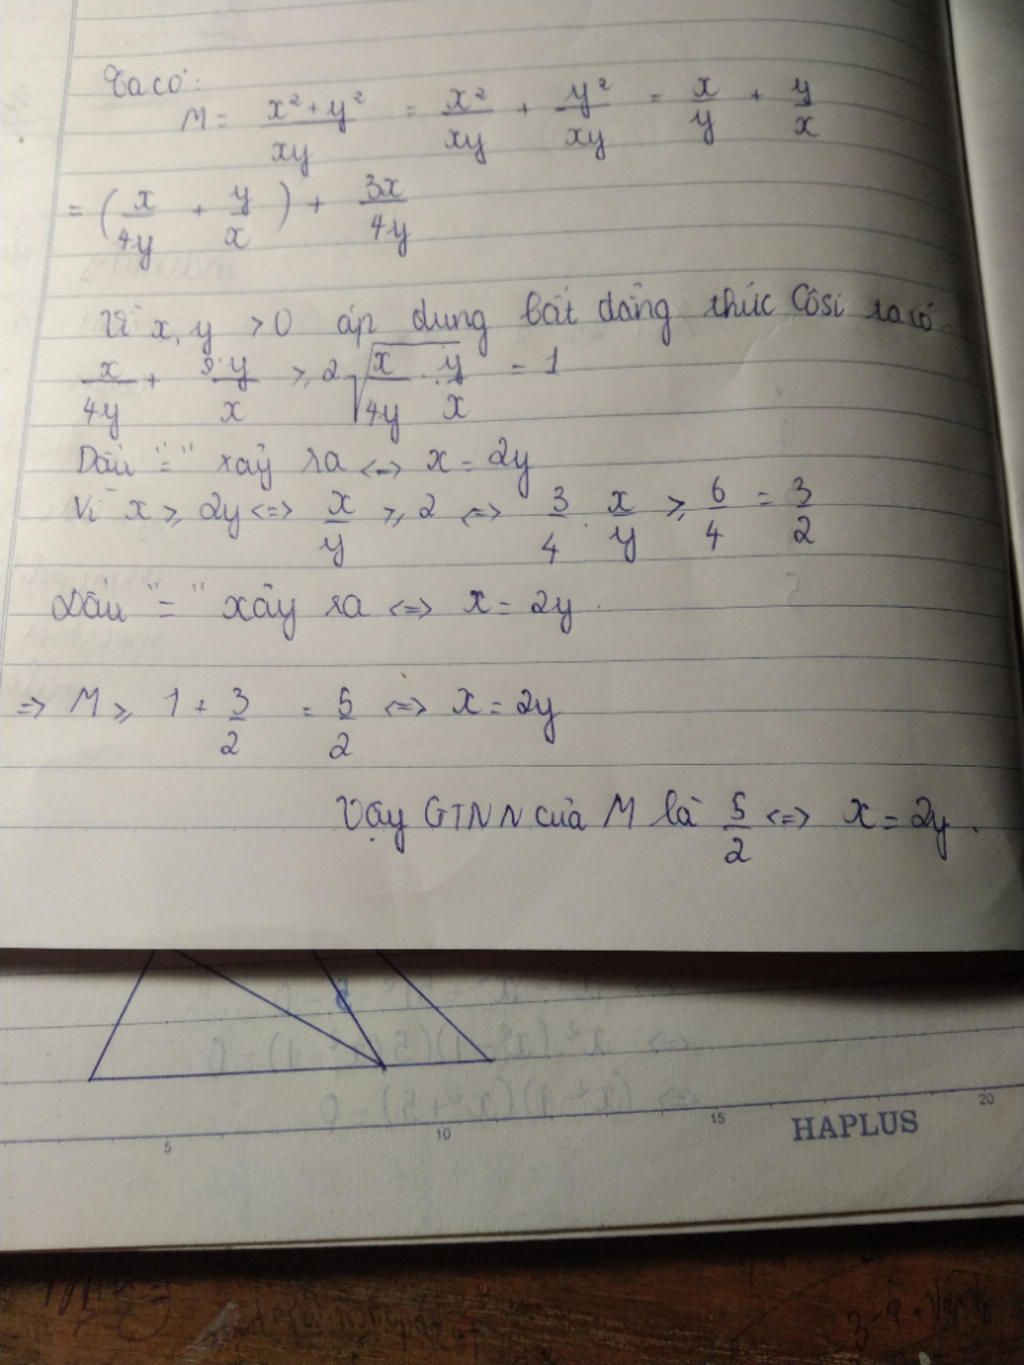 Ta có:
M = x²+y²/xy = x²/xy + y²/xy = x/y + y/x
= (x/4y + y/x) + 3x/4y
Vì x, y > 0 áp dụng bất đẳng thức Côsi ta có
x/4y + y/x ≥ 2√(x/4y . y/x) = 1
Dấu "=" xảy ra <=> x = 2y
Vì x ≥ 2y <=> x/y ≥ 2 <=> 3/4 . x/y ≥ 6/4 = 3/2
Dấu "=" xảy ra <=> x = 2y.
=> M ≥ 1 + 3/2 = 5/2 <=> x = 2y
Vậy GTNN của M là 5/2 <=> x = 2y.
5 10 15 20
HAPLUS